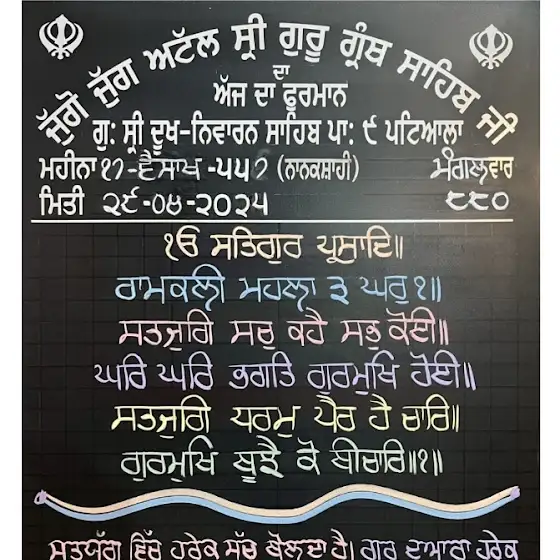 ਜੁੱਗੋ ਜੁੱਗ ਅਟੱਲ ਸ੍ਰੀ ਗੁਰੂ ਗ੍ਰੰਥ ਸਾਹਿਬ ਜੀ
ਦਾ
ਅੱਜ ਦਾ ਫੂਰਮਾਨ
ਗੁ: ਸ੍ਰੀ ਦੂਖ-ਨਿਵਾਰਨ ਸਾਹਿਬ ਪਾ: ੯ ਪਟਿਆਲਾ
ਮਹੀਨਾ ੧੭-ਵੈਸਾਖ-੫੫੭ (ਨਾਨਕਸ਼ਾਹੀ) ਮੰਗਲਵਾਰ
ਮਿਤੀ ੨੯-੦੪-੨੦੨੫ ੮੮੦
ੴ ਸਤਿਗੁਰ ਪ੍ਰਸਾਦਿ॥
ਰਾਮਕਲੀ ਮਹਲਾ ੩ ਘਰੁ ੧॥
ਸਤਜੁਗਿ ਸਚੁ ਕਹੈ ਸਭੁ ਕੋਈ॥
ਘਰਿ ਘਰਿ ਭਗਤਿ ਗੁਰਮੁਖਿ ਹੋਈ॥
ਸਤਜੁਗਿ ਧਰਮੁ ਪੈਰ ਹੈ ਚਾਰਿ॥
ਗੁਰਮੁਖਿ ਬੂਝੈ ਕੋ ਬੀਚਾਰਿ॥੧॥
ਸਤਯੁੱਗ ਵਿੱਚ ਹਰੇਕ ਸੱਚ ਬੋਲਦਾ ਹੈ। ਗੁਰ ਦੁਆਰਾ ਹਰੇਕ